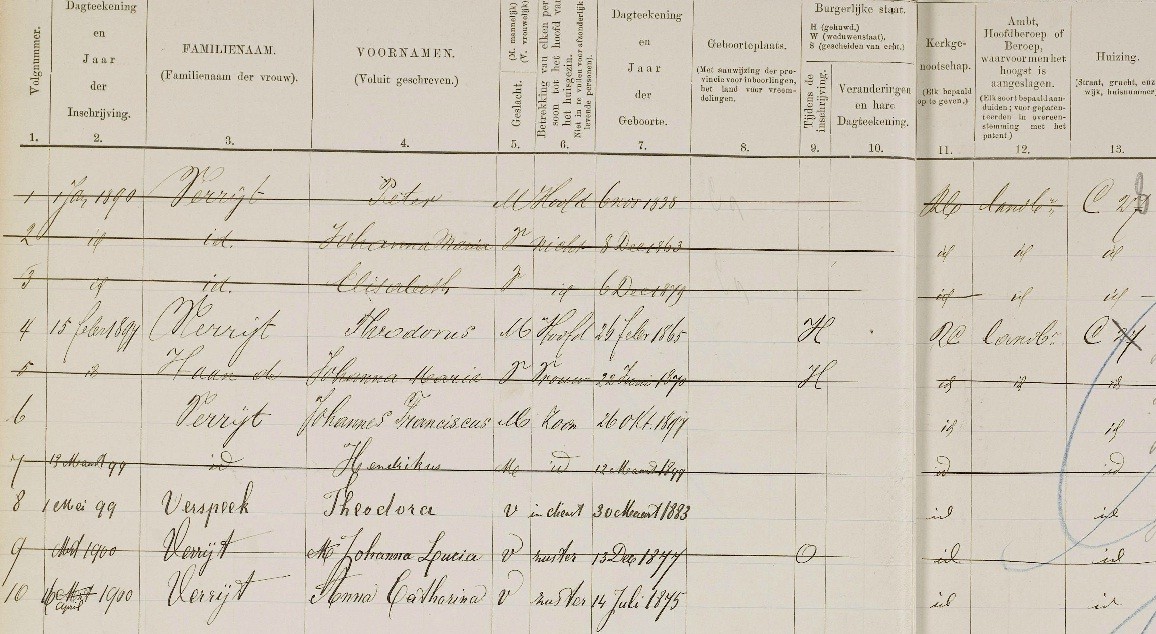 Volgnummer.
Dagteekening en Jaar der Inschrijving.
FAMILIENAAM.
(Familienaam der vrouw).
VOORNAMEN.
(Voluit geschreven.)
Geslacht. (M. mannelijk) (V. vrouwelijk)
Betrekking van elken persoon tot het hoofd van het huisgezin.
Niet in te vullen voor afzonderlijk levende personen).
Dagteekening en Jaar der Geboorte.
Geboorteplaats.
(Met aanwijzing der provincie voor inboorlingen, het land voor vreemdelingen.
Burgerlijke staat.
H (gehuwd.)
W (weduwenstaat),
S (gescheiden van echt.)
Tijdens de inschrijving.
Veranderingen en hare Dagteekening.
Kerkgenootschap.
(Elk bepaald op te geven.)
Ambt, Hoofdberoep of Beroep, waarvoor men het hoogst is aangeslagen.
(Elk soort bepaald aanduiden; voor gepatenteerden in overeenstemming met het patent.)
Huizing.
(Straat, gracht, enz. wijk, huisnummer)
1. 2. 3. 4. 5. 6. 7. 8. 9. 10. 11. 12. 13.
1 1 Jan 1890 Verrijt Peter M Hoofd 6 nov 1838 RC landbr. C 27
2 id id. Johanna Maria V nicht 8 Dec 1863 id id id
3 id id. Elisabeth V id 6 Dec 1879 id id id
4 15 febr 1897 Verrijt Theodorus M Hoofd 26 febr 1865 H RC Landbr. C 27
5 id Haan de Johanna Maria V Vrouw 22 Juni 1870 H id id id
6 Verrijt Johannes Franciscus M Zoon 26 Okt. 1897 id id
7 13 Maart 99 id Hendrikus M id 12 Maart 1899 id id
8 1 Mei 99 Verspeek Theodora V in dienst 30 Maart 1883 id id
9 1900 Verrijt Johanna Lucia V zuster 13 Dec 1877 O id id
10 16 April 1900 Verrijt Anna Catharina V zuster 14 Juli 1875 id id